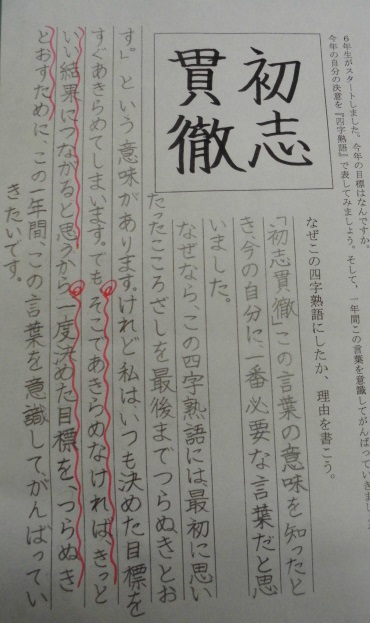 6年生がスタートしました。今年の目標はなんですか。
今年の自分の決意を『四字熟語』で表してみましょう。そして、一年間この言葉を意識してがんばっていきま
初志
貫徹
なぜこの四字熟語にしたか、理由を書こう。
「初志貫徹」この言葉の意味を知ったと
き、今の自分に、一番必要な言葉だと思
いました。
なぜなら、この四字熟語には、最初に思い
たったこころざしを最後までつらぬきとお
す。」という意味があります。けれど私は、いつも決めた目標を
すぐあきらめてしまいます。でも、そこであきらめなければ、きっと
いい結果につながると思うから、一度決めた目標を、つらぬき
とおすために、この一年間この言葉を意識して、がんばってい
きたいです。